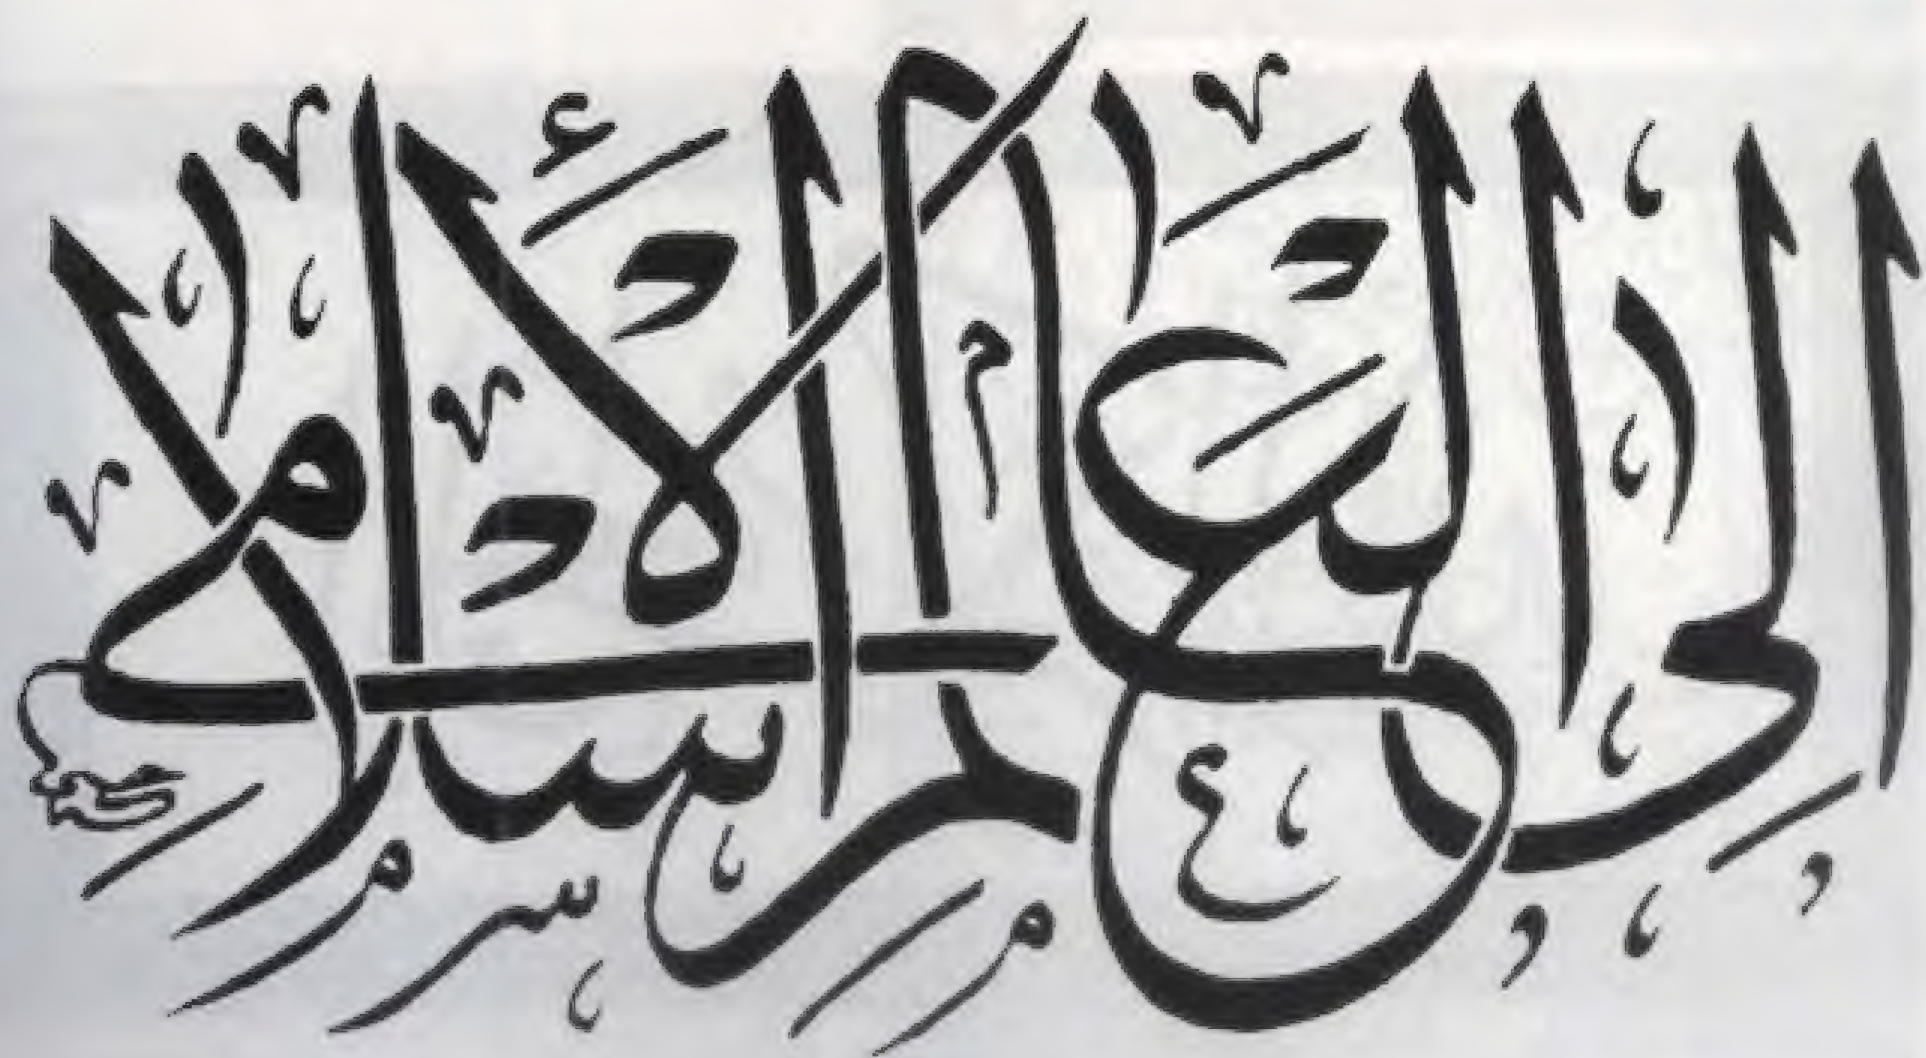 الى العالم الاسلامى